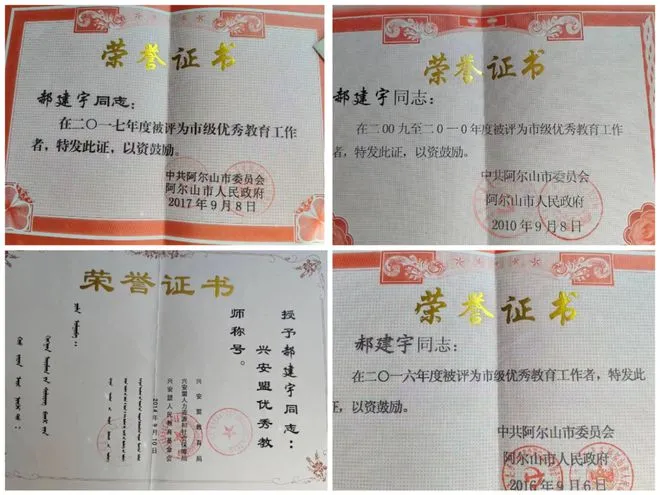 荣誉证书
郝建宇同志：
在二〇一七年度被评为市级优秀教育工作
者，特发此证，以资鼓励。
中共阿尔山市委员会
阿尔山市人民政府
2017年9月8日
荣誉证书
郝建宇同志：
在二00九至二0一0年度被评为市级优秀教育工作
者，特发此证，以资鼓励。
中共阿尔山市委员会
阿尔山市人民政府
2010年9月8日
荣誉证书
授予郝建宇同志：
兴安盟优秀教
师称号。
兴安盟教育局
兴安盟人力资源和社会保障局
兴安盟人民教育基金会
2014年9月10日
荣誉证书
郝建宇同志：
在二〇一六年度被评为市级优秀教育工作者，特发此
证，以资鼓励。
中共阿尔山市委员会
阿尔山市人民政府
2016年9月6日